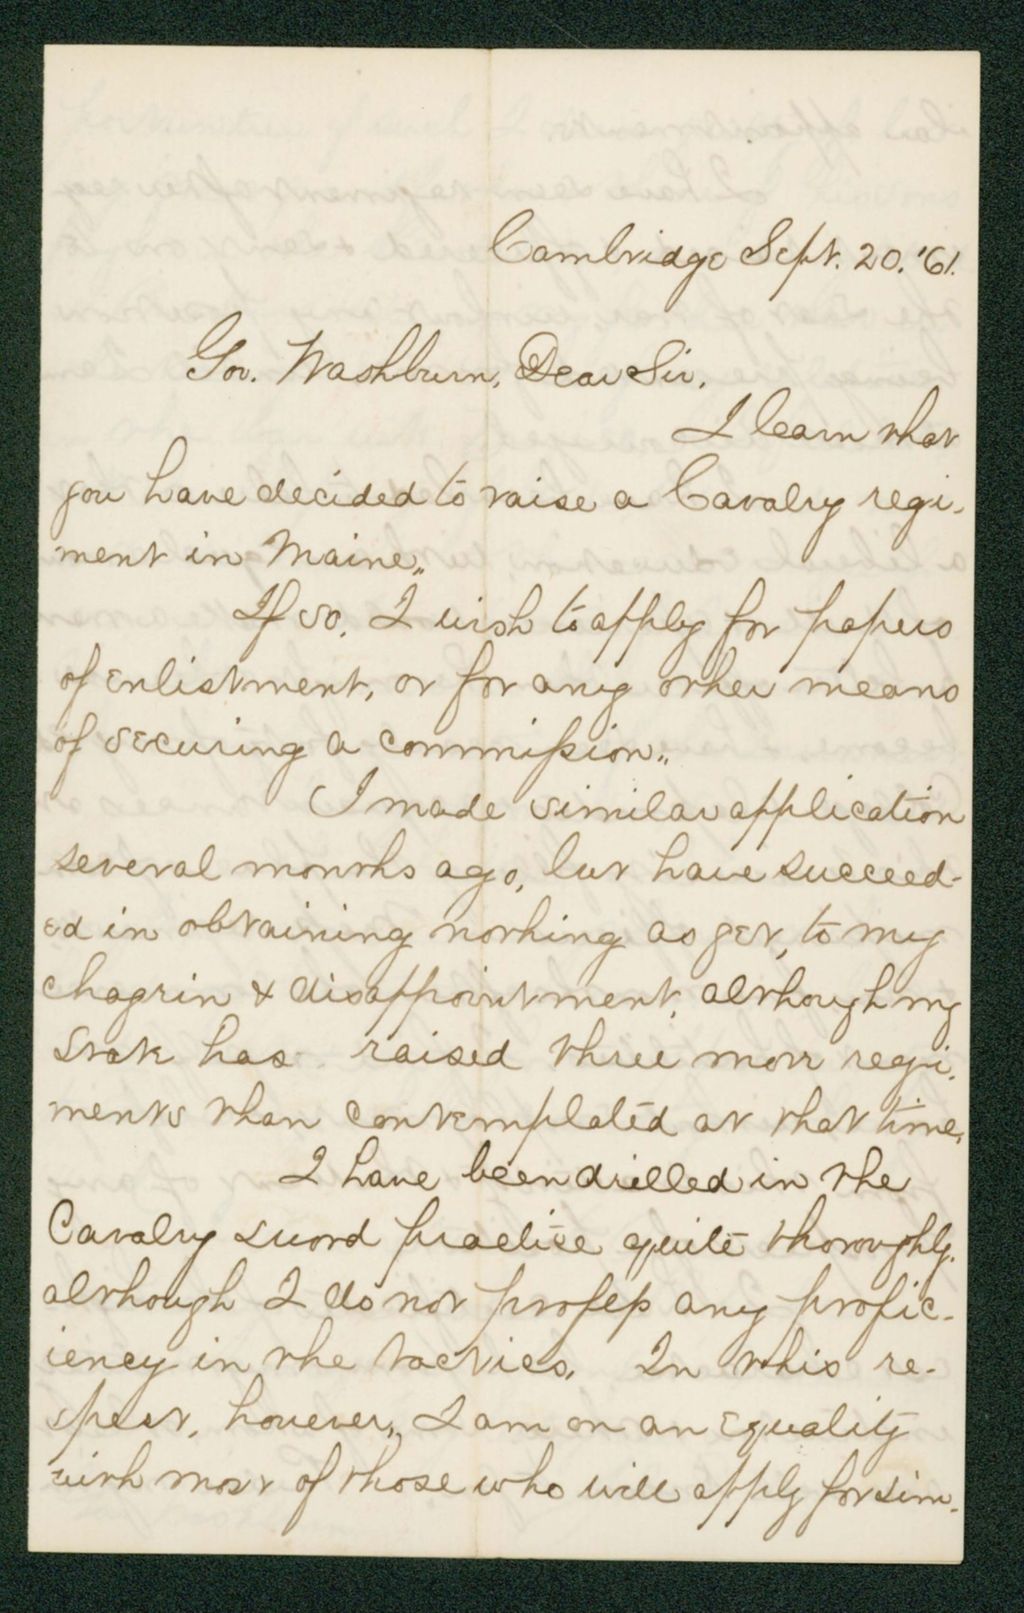 Cambridge Sept. 20. '61.
Gov. Washburn, Dear Sir,
I learn that
you have decided to raise a Cavalry regi-
ment in Maine,,
If so, I wish to apply for papers
of enlistment, or for any other means
of securing a commission,,
I made similar application
several months ago, but have succeed-
ed in obtaining nothing as yet, to my
chagrin & disappointment, although my
State has raised three more regi-
ments than contemplated at that time,
I have been drilled in the
Cavalry sword practice quite thoroughly,
although I do not profess any profic-
iency in the tactics. In this re-
spect, however,, I am on an equality
with most of those who will apply for sim-